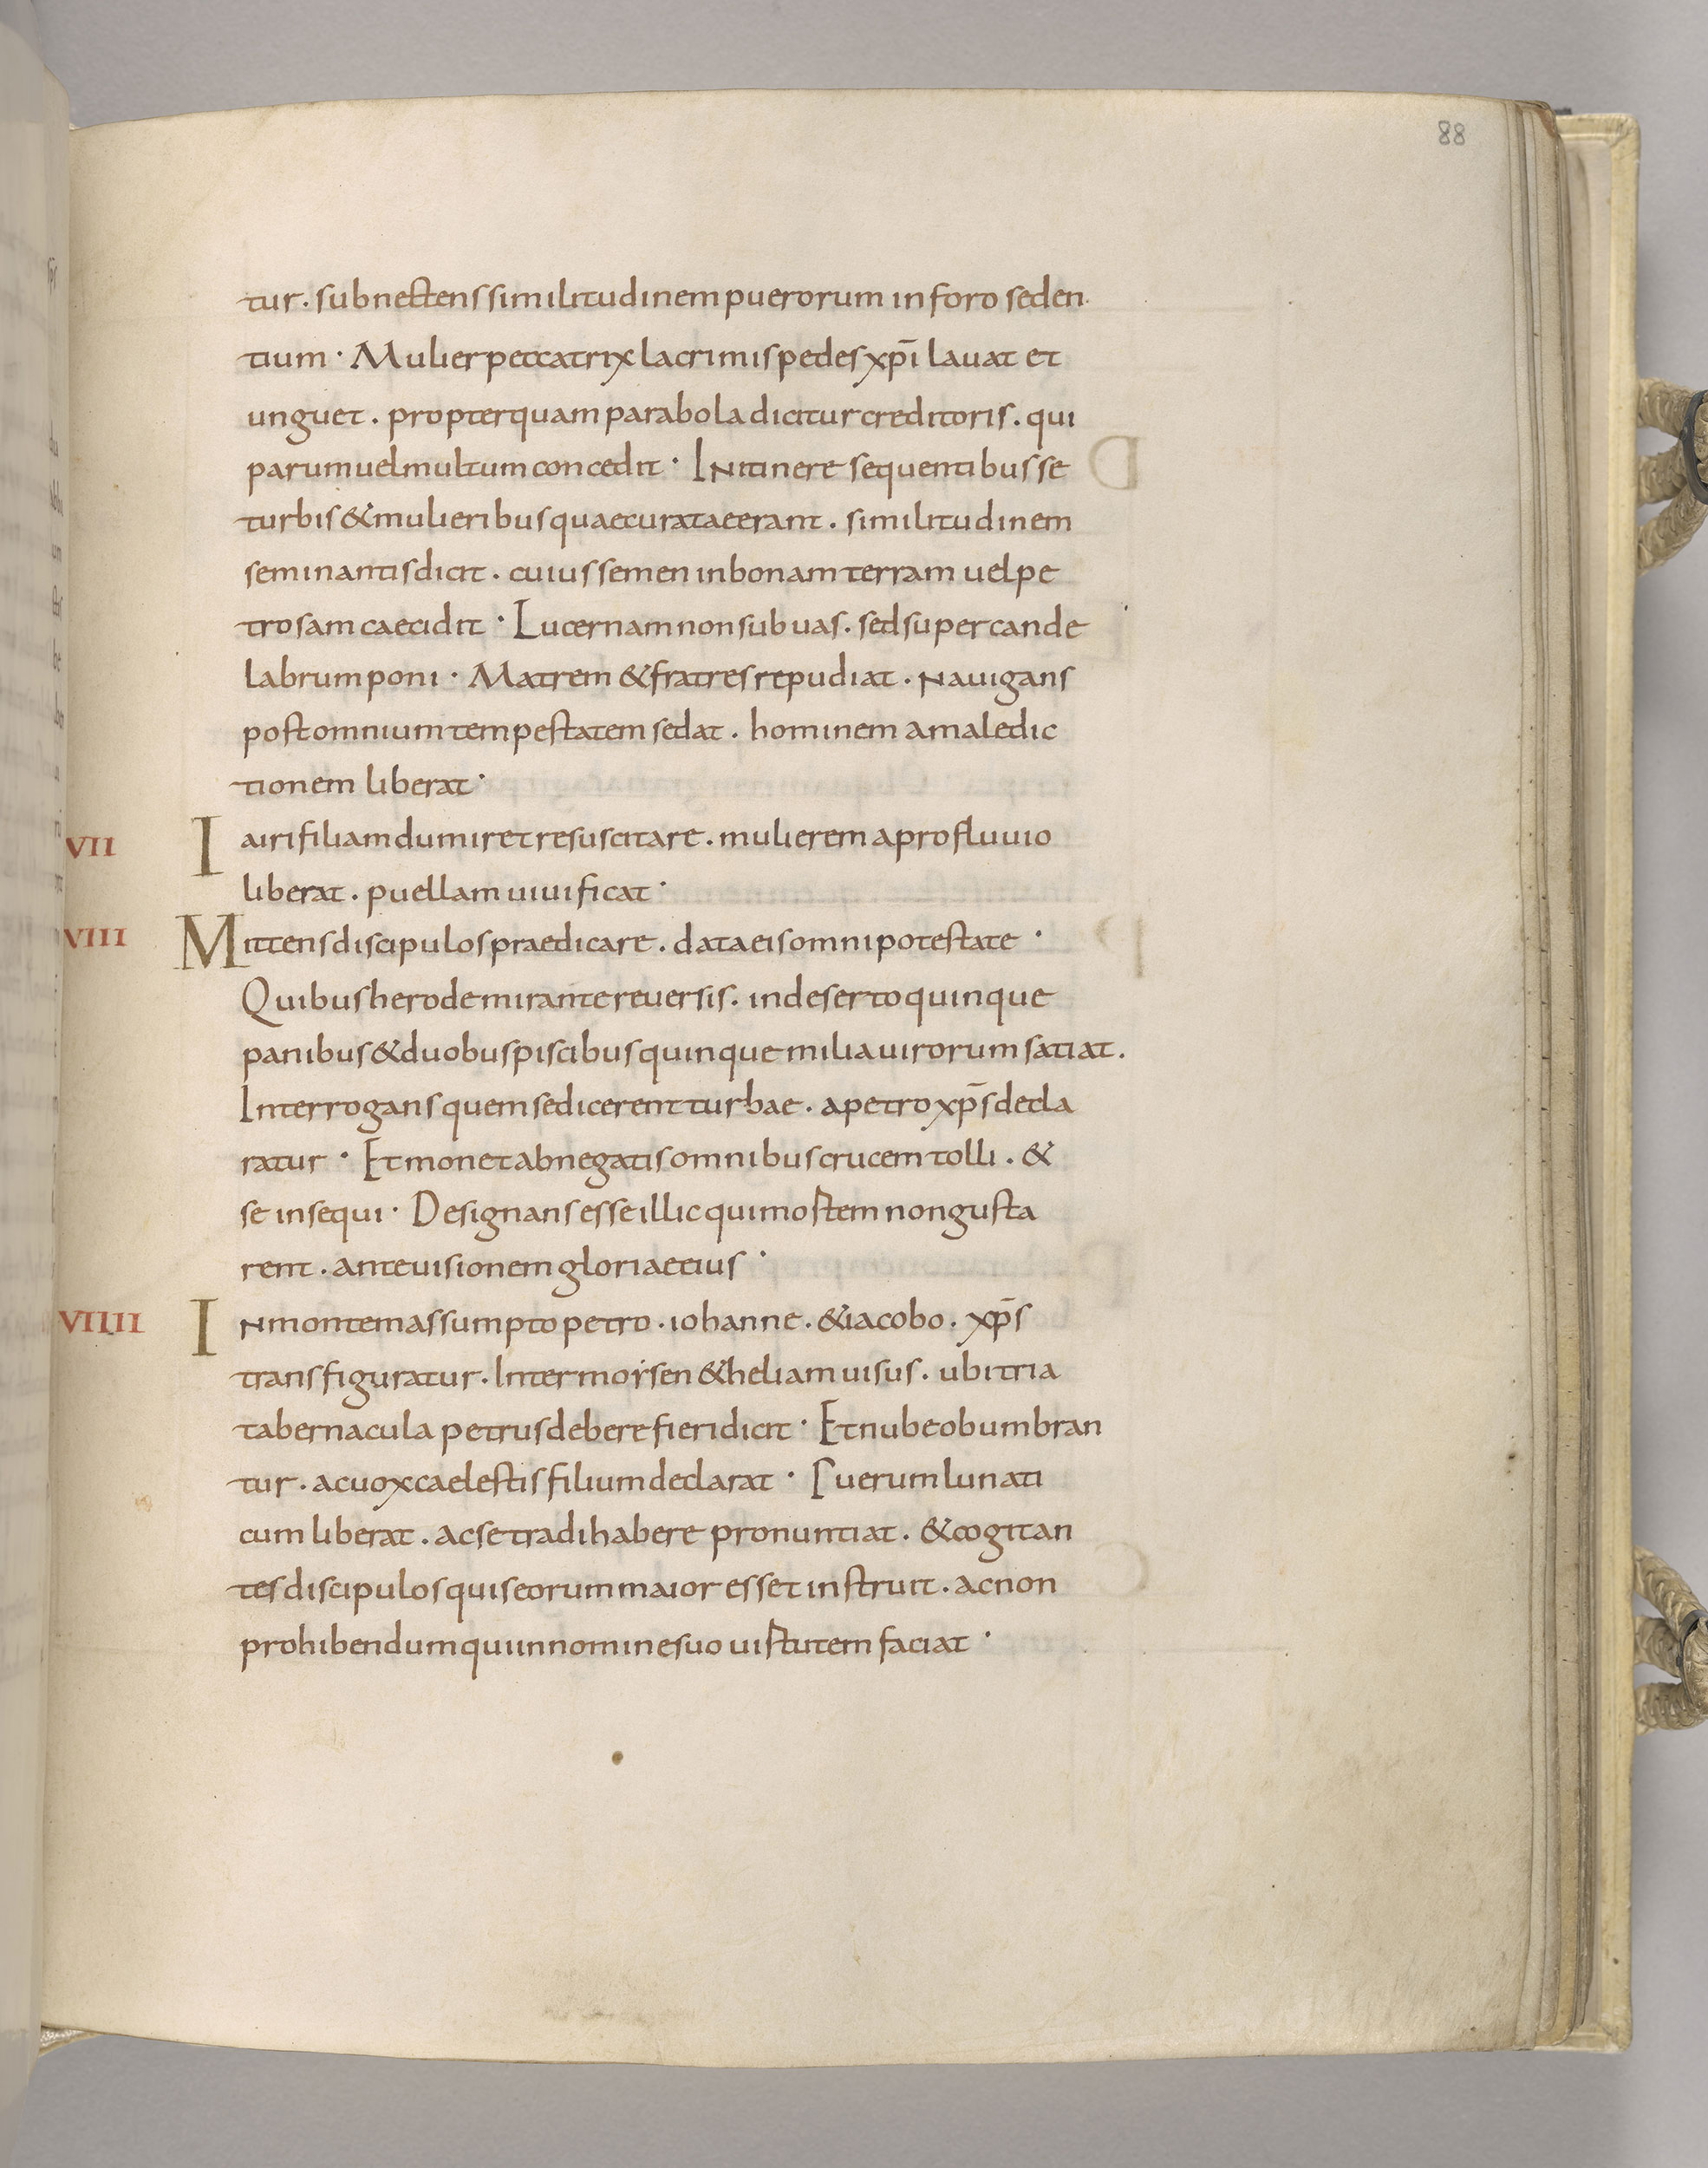 88
tur. subnectens similitudinem puerorum in foro seden
tium · Mulier peccatrix lacrimis pedes xp̄i lauat et
unguet. propter quam parabola dicitur creditoris. qui
parum uel multum concedit · In itinere sequentibus se
turbis & mulieribus quae curatae erant. similitudinem
seminantis dicit. cuius semen in bonam terram uel pe
trosam caecidit · Lucernam non sub uas. sed super cande
labrum poni · Matrem & fratres repudiat. Nauigans
post omnium tempestatem sedat. hominem a maledic
tionem liberat ·
VII Iairi filiam dum iret resuscitare. mulierem a profluuio
liberat. puellam uiuificat ·
VIII Mittens discipulos praedicare. data eis omni potestate ·
Quibus herode mirante reuersis. in deserto quinque
panibus & duobus piscibus quinque milia uirorum satiat.
Interrogans quem se dicerent turbae. a petro xp̄s decla
ratur · Et monet abnegatis omnibus crucem tolli. &
se insequi · Designans esse illic qui mortem non gusta
rent. ante uisionem gloriae eius ·
VIIII In montem assumpto petro. iohanne. & iacobo. xp̄s
transfiguratur. Inter moẏsen & heliam uisus. ubi tria
tabernacula petrus debere fieri dicit · Et nube obumbran
tur. ac uox caelestis filium declarat · Puerum lunati
cum liberat. ac se tradi habere pronuntiat. & cogitan
tes discipulos quis eorum maior esset instruit. ac non
prohibendum qui in nomine suo uirtutem faciat ·